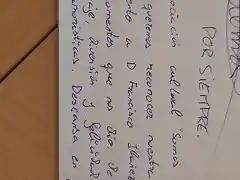 POR SIEMPRE.
ociación cultural "Somos
queremos reconocer nuestra
ento a D Francisco Ibáñez
omentos que nos dio de
aje, diversión y felicidad
Descansa en